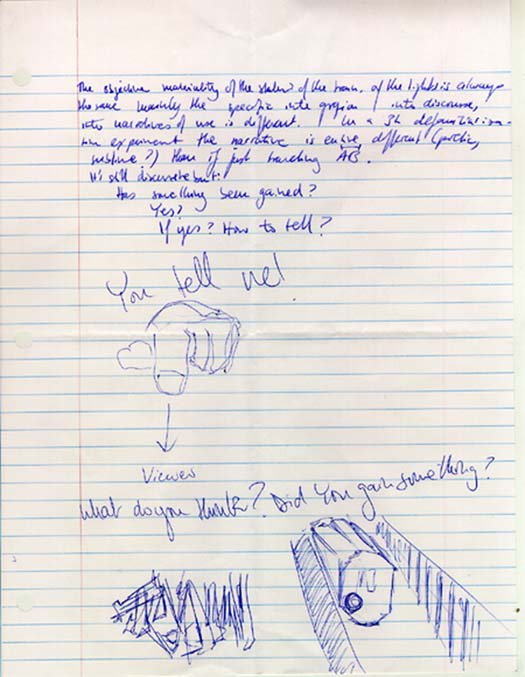 The objective materiality of the station? of the train, of the lights is always
the same mainly the specific integration into discourse,
into narratives of use is different. In a 3h
experiment the narrative is entire different (poetic,
) than if just traveling AB.
It's still discrete but:
Has something been gained?
Yes?
If yes? How to tell?
You tell me!
Viewer
What do you think? Did You gain something?